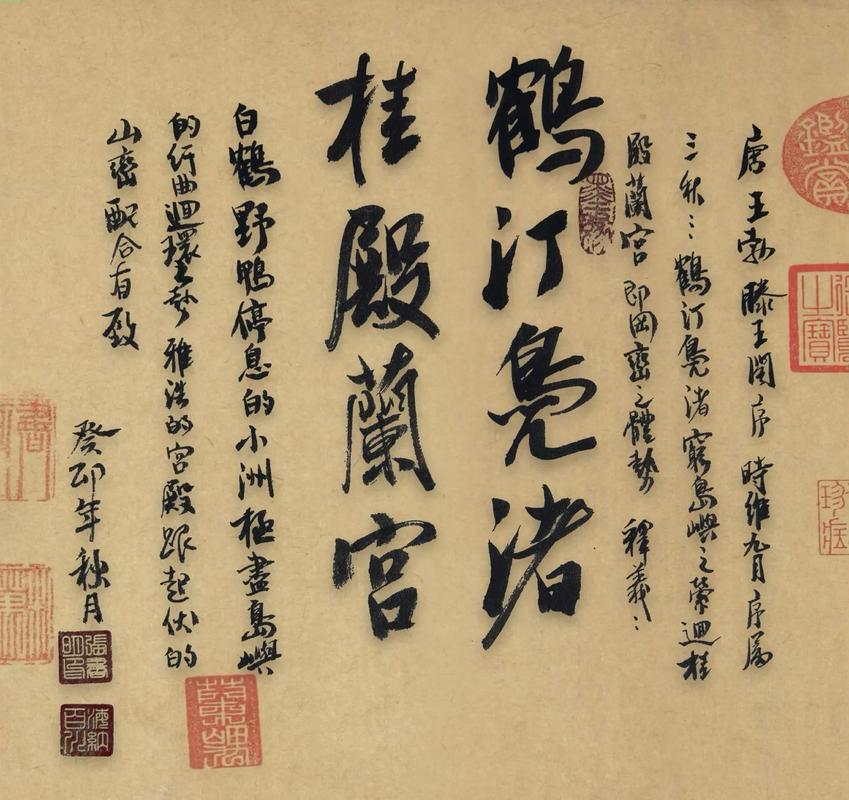 鑑賞
之寶
唐王勃滕王閣序 時維九月序属
三秋：鶴汀鳧渚窮島嶼之縈迴桂
殿蘭宮即岡巒之體勢 釋義：
鶴汀鳧渚
桂殿蘭宮
白鶴野鴨停息的小洲極盡島嶼
的紆曲迴環之勢雅浩的宮殿跟起伏的
山巒配合有致
癸卯年秋月
海納百川